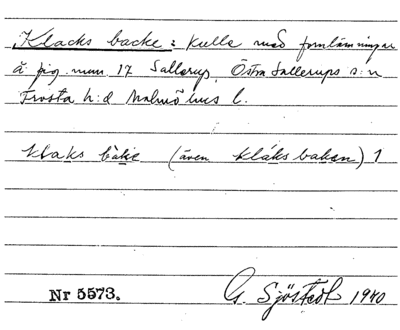 Klacks backe: Kulle med fornlämningar
å äg. num 17 Sallerup, Östra Sallerups s:n
Frosta h:d Malmöhus l.
klaks bakie (även klåks bakan) 1
Nr 5573. G. Sjöstedt 1940